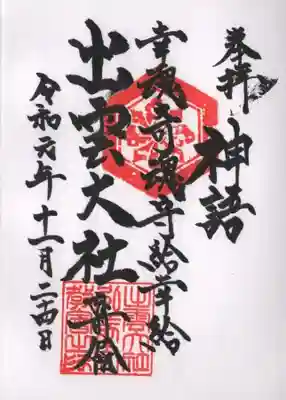 奉拝
神語
幸魂奇魂守給幸給
出雲大社
令和元年十一月二十四日